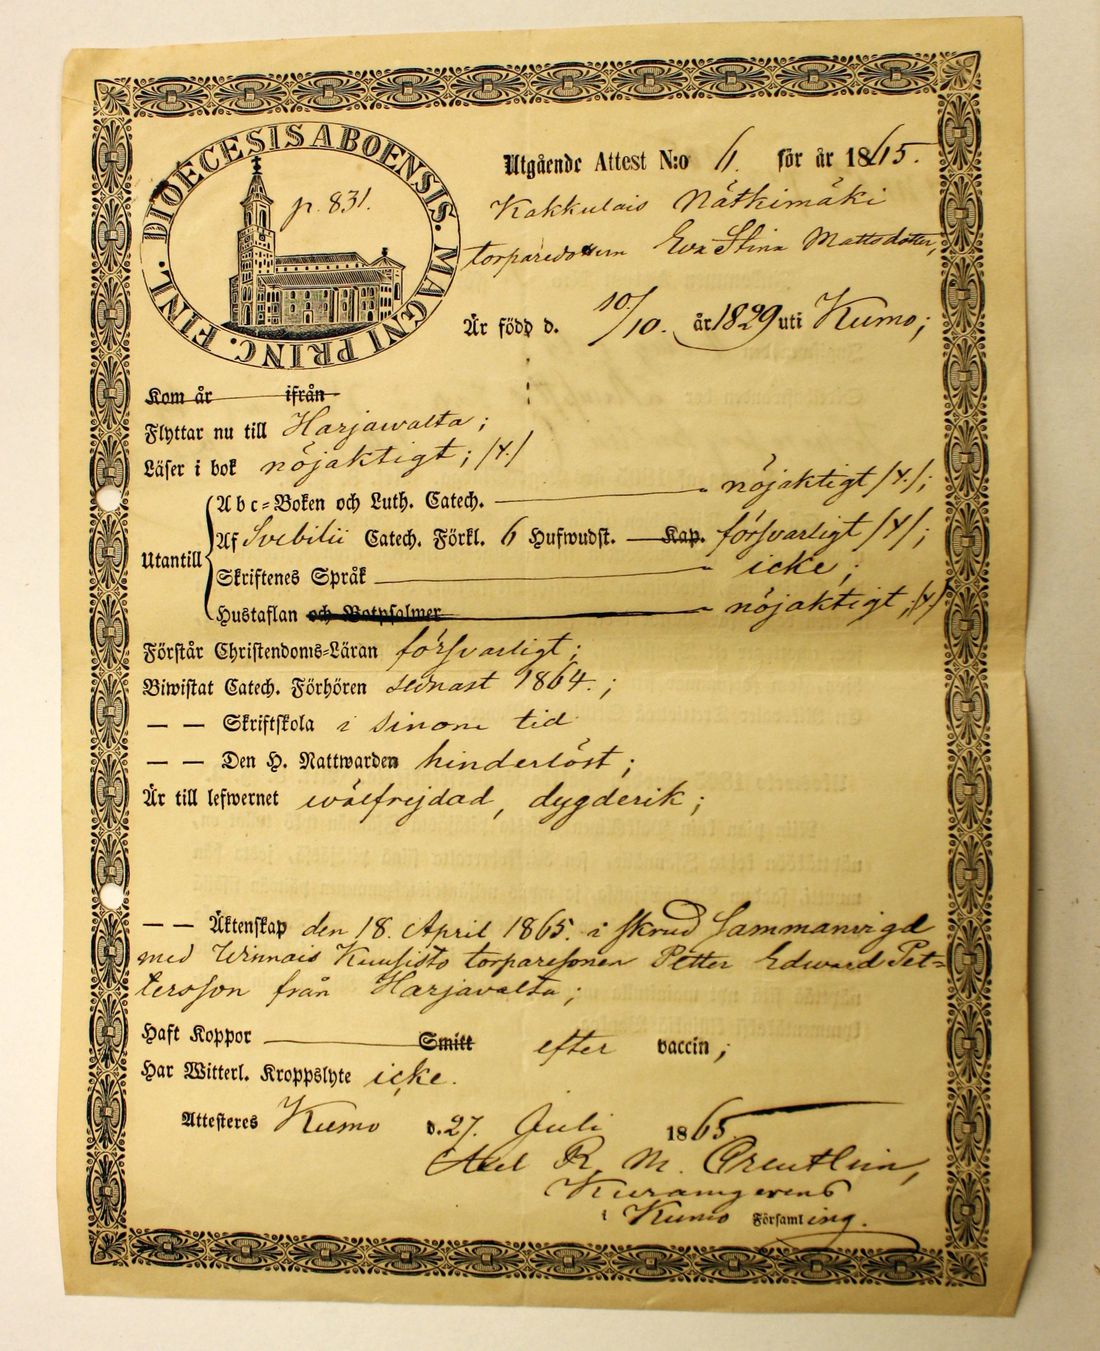 DIOECESIS ABOENSIS. MAGNI PRINC. FINL.
p. 831.
Utgående Attest N:o 6. för år 1865.
Kakkulais Nätkimäki
torparedottern Eva Stina Mattsdotter,
Är född d. 10/10. år 1829 uti Kumo;
Kom år ifrån
Flyttar nu till Harjawalta;
Läser i bok nöjaktigt; /4./
Utantill
Abc-Boken och Luth. Catech. nöjaktigt /4./;
Af Svebilii Catech. Förkl. 6 Hufwudst. Kap. försvarligt /4/;
Skriftenes Språk icke;
Hustaflan och Botpsalmer nöjaktigt; /4/
Förstår Christendoms-Läran försvarligt;
Biwistat Catech. Förhören sednast 1864.;
— — Skriftskola i sinom tid
— — Den H. Nattwarden hinderlöst;
Är till lefwernet wälfrejdad, dygderik;
— — Äktenskap den 18. April 1865. i skrud Sammanvigd
med Winnais Kuusisto torparesonen Petter Edward Pet=
tersson från Harjavalta;
Haft Koppor Smitt efter vaccin;
Har Witterl. Kroppslyte icke.
Attesteres Kumo d. 27. Juli 1865
Axel R. M.
i Kumo Församling.